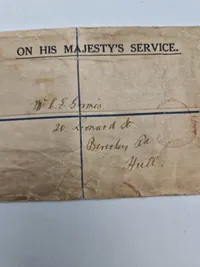 ON HIS MAJESTY'S SERVICE.
Mr. C. E.
20. Leonard St
Beverley Rd
Hull.